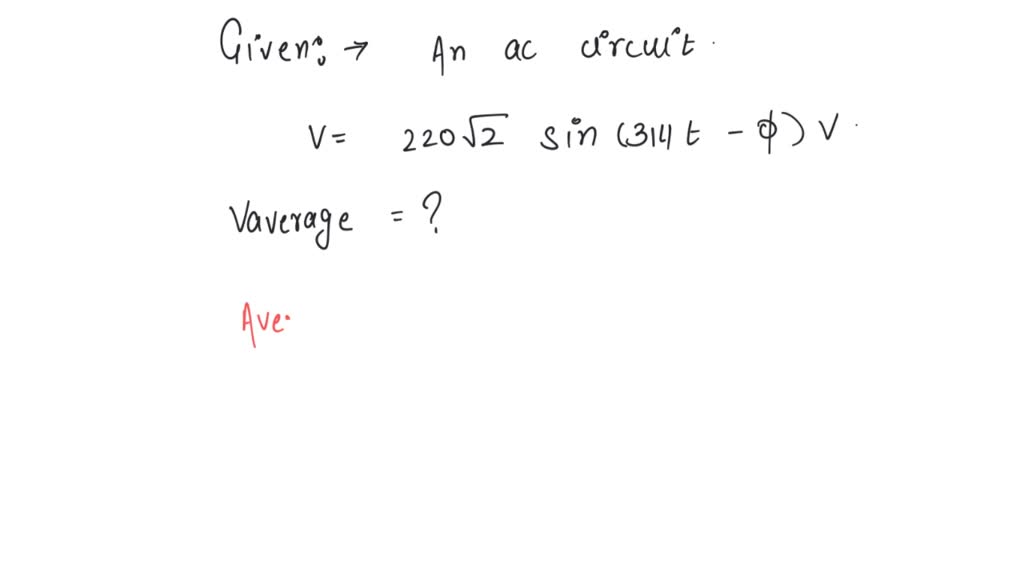 Given: → An ac circuit.
V = 220√2 sin (314 t - φ) V.
Vaverage = ?
Ave